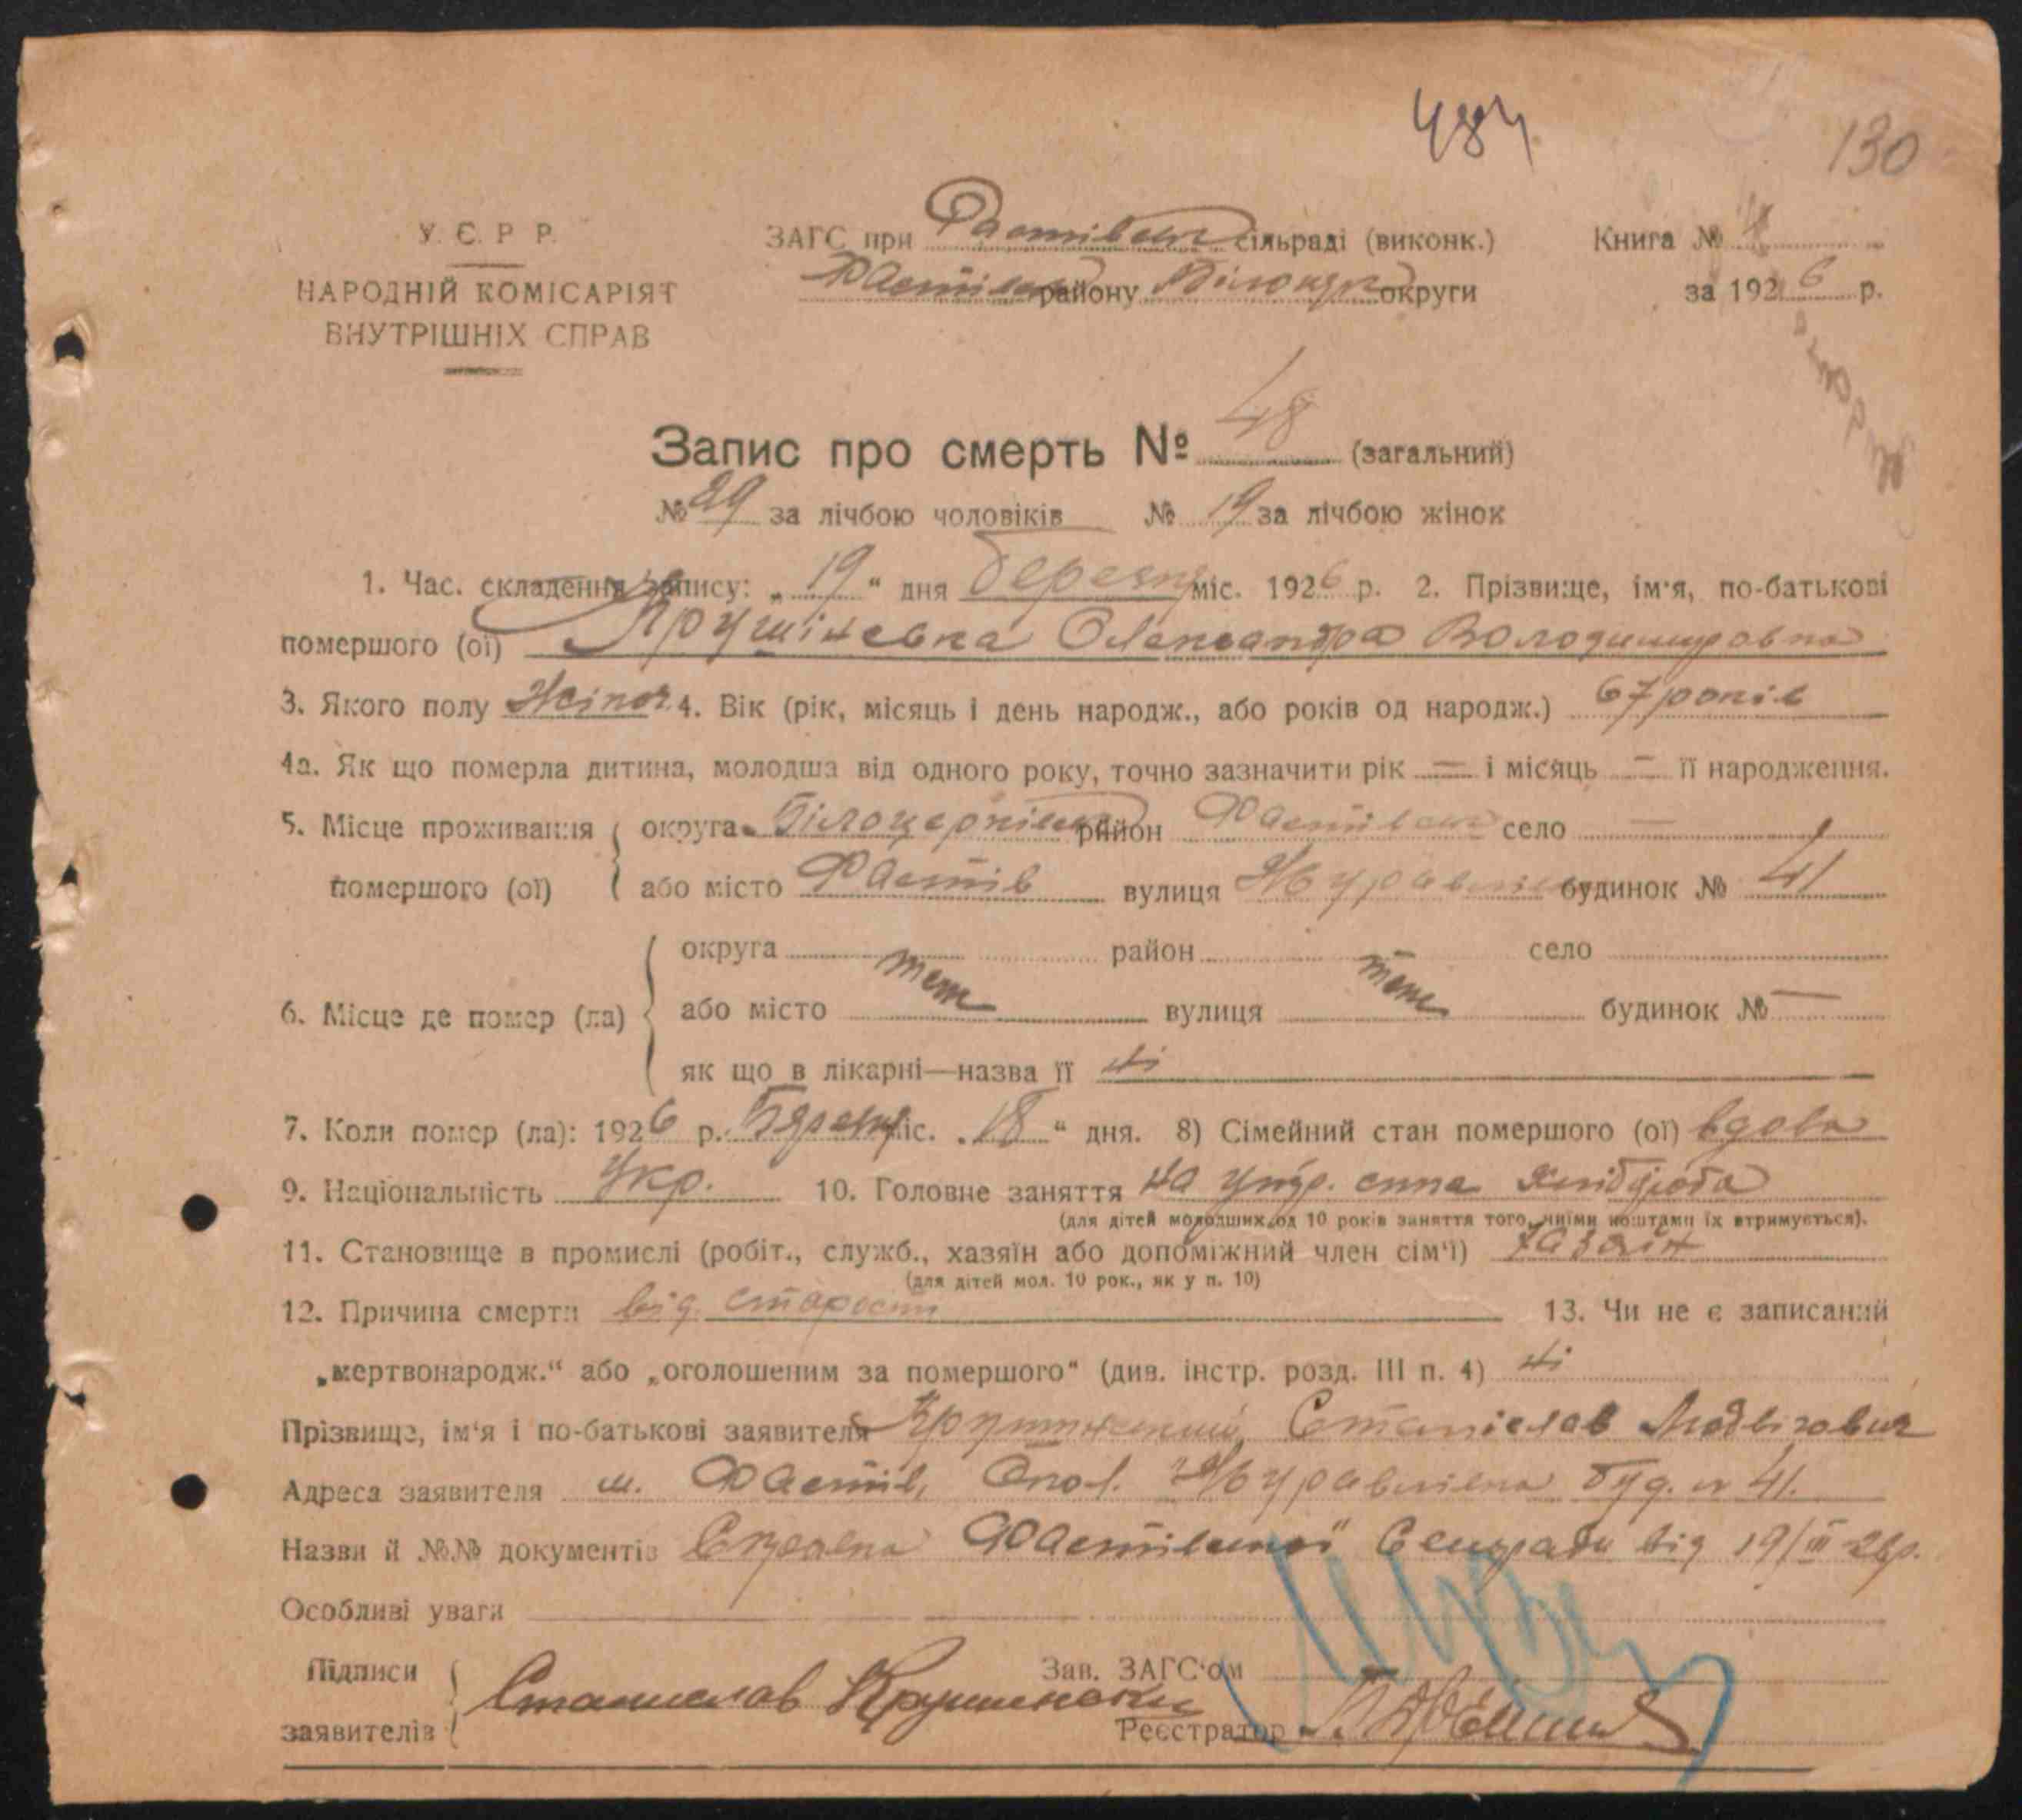 484
130
У. С. Р. Р.
НАРОДНІЙ КОМІСАРІЯТ
ВНУТРІШНІХ СПРАВ
ЗАГС при Фастівськ сільраді (виконк.)
Фастівськ району Білоцерк округи
Книга №
за 1926 р.
Запис про смерть № 48 (загальний)
№ 29 за лічбою чоловіків № 19 за лічбою жінок
1. Час. складення запису: „19“ дня березня міс. 1926 р. 2. Прізвище, ім'я, по-батькові
помершого (ої) Крушінська Олександра Володимировна
3. Якого полу Жіноч. 4. Вік (рік, місяць і день народж., або років од народж.) 67 років
4а. Як що померла дитина, молодша від одного року, точно зазначити рік — і місяць — її народження.
5. Місце проживання округа Білоцерківська район Фастівськ село —
помершого (ої) або місто Фастів вулиця будинок № 41
6. Місце де помер (ла) округа район село
або місто теж вулиця теж будинок № —
як що в лікарні—назва її ні
7. Коли помер (ла): 1926 р. міс. „18“ дня. 8) Сімейний стан помершого (ої) вдова
9. Національність Укр. 10. Головне заняття на утр. сина хлібороба
(для дітей молодших од 10 років заняття того, чиїми коштами їх втримується).
11. Становище в промислі (робіт., служб., хазяїн або допоміжний член сім'ї) хазяїн
(для дітей мол. 10 рок., як у п. 10)
12. Причина смерти від старости 13. Чи не є записаний
„мертвонародж.“ або „оголошеним за помершого“ (див. інстр. розд. III п. 4) ні
Прізвище, ім'я і по-батькові заявителя Крушинський Станіслав Людвігович
Адреса заявителя м. Фастів, буд. № 41.
Назви й №№ документів Фастівської від 19/III 26 р.
Особливі уваги
Підписи
заявителів Станислав Крушинский
Зав. ЗАГС'ом
Реєстратор